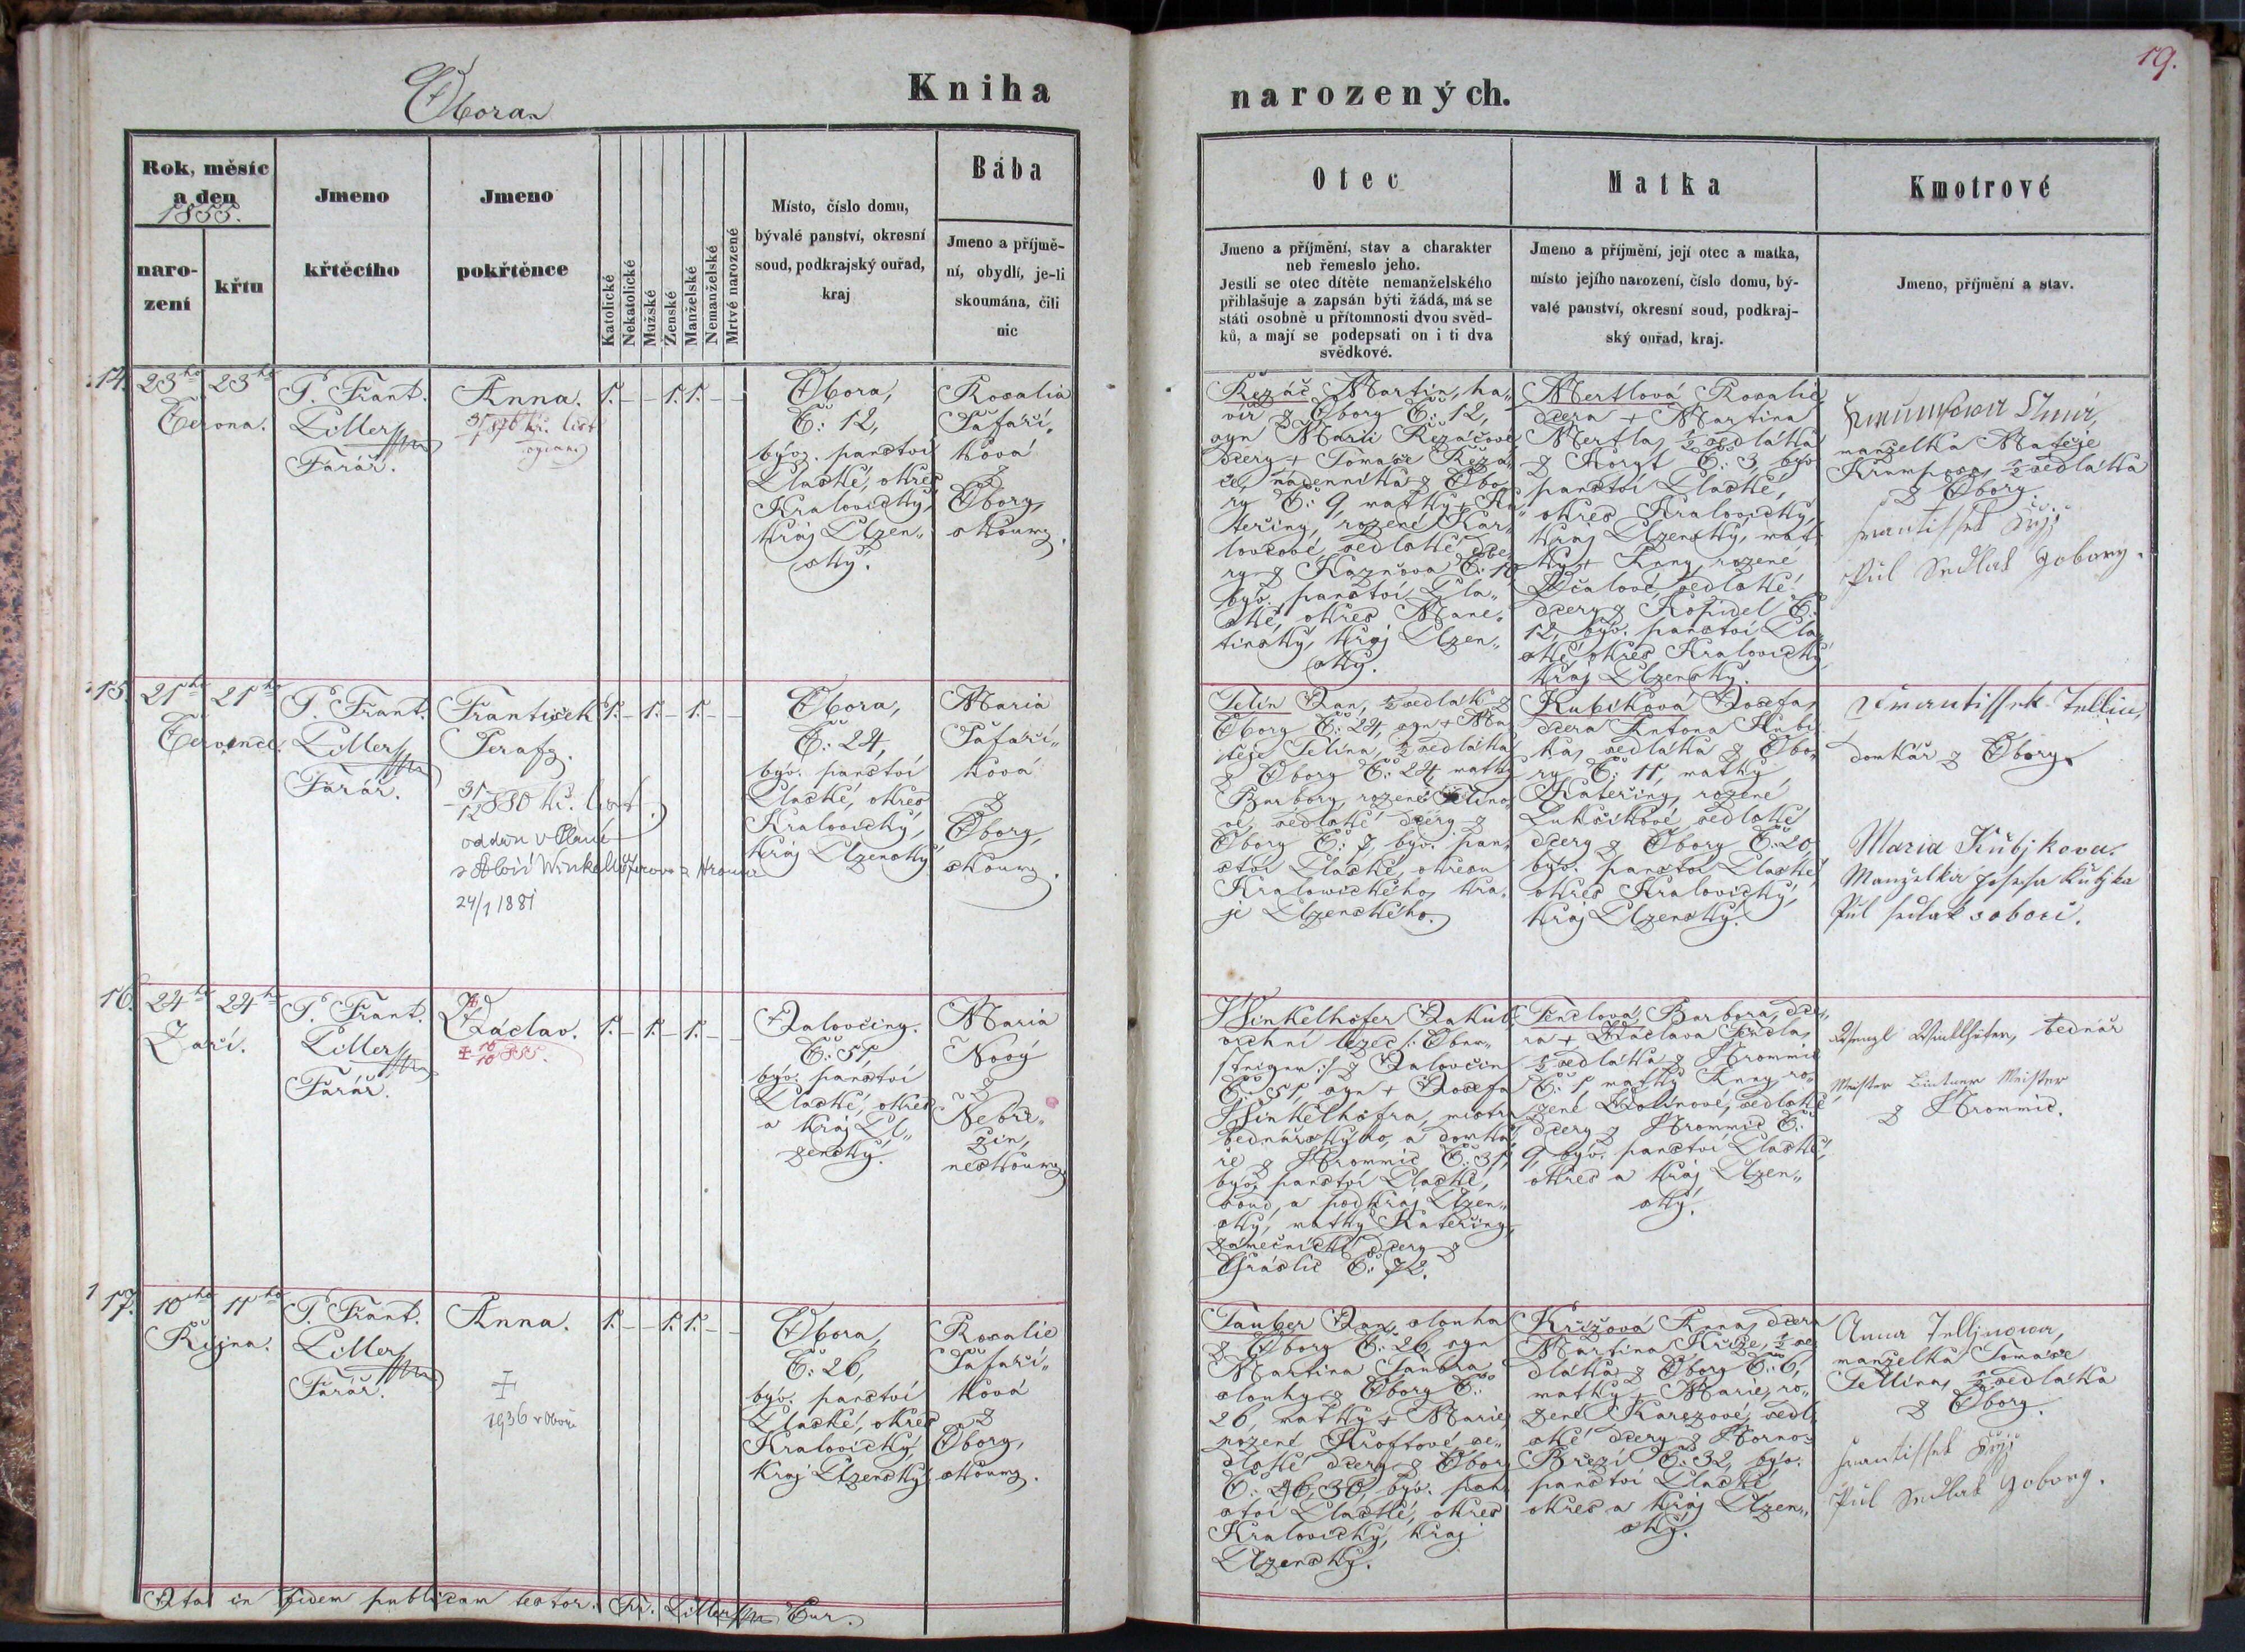 19.
Obora.
Kniha narozených.
Rok, měsíc
a den
1855.
naro-
zení
křtu
Jmeno
křtěcího
Jmeno
pokřtěnce
Katolické
Nekatolické
Mužské
Ženské
Manželské
Nemanželské
Mrtvé narozené
Místo, číslo domu,
bývalé panství, okresní
soud, podkrajský ouřad,
kraj
Bába
Jmeno a příjmě-
ní, obydlí, je-li
skoumána, čili
nic
Otec
Jmeno a příjmění, stav a charakter
neb řemeslo jeho.
Jestli se otec dítěte nemanželského
přihlašuje a zapsán býti žádá, má se
státi osobně u přítomnosti dvou svěd-
ků, a mají se podepsati on i ti dva
svědkové.
Matka
Jmeno a příjmění, její otec a matka,
místo jejího narození, číslo domu, bý-
valé panství, okresní soud, podkraj-
ský ouřad, kraj.
Kmotrové
Jmeno, příjmění a stav.
14.
23ho
23ho
Června.
P. Frant.
Piller
Farář.
Anna.
31/1 876 kř. list
1. – – 1. 1. – –
Obora,
Č: 12,
býv. panství
Plaské, okres
Kralovický,
kráj Plzen„
ský.
Rosalia
Šafaří„
ková
z
Obory,
skoumz.
Řezáč Martin, ha„
víř z Obory Č: 12,
syn Marii Řezáčové
dcery + Tomáše Řezá„
če, nádenníka z Obo„
ry Č: 9, matky + Ka„
teřiny, rozené Kar„
lovcové, sedlské dce„
ry z Kaznova Č: 10
býv. panství Pla„
ské, okres Mane„
tinský, kraj Plzen„
ský.
Mertlová Rosalie
dcera + Martina
Mertla, 1/2 sedláka
z Koryt Č: 3, býv.
panství Plaské,
okres Kralovický,
kraj Plzenský, mat„
ky + Anny rozené
sedlské
dcery z Kopidel Č:
12, býv. panství Pla„
ské okres Kralovický,
kraj Plzenský.
manželka Matěje
Krumpose, 1/2 sedláka
z Obory.
Frantissek
Půl Sedlak zobory.
15.
21ho
21ho
Července.
P. Frant.
Piller
Farář.
František
Serafz.
31/12 880 kř. list
oddán v Plané
s Aloisií Winkelhöferovou z Hromnic
24/1 1881
1. – 1. – 1. – –
Obora,
Č: 24,
býv. panství
Plaské, okres
Kralovický,
kráj Plzenský
Maria
Šafaří„
ková
z
Obory,
skoumz.
Telín Jan, 1/2 sedlák z
Obory Č: 24, syn + Ma„
těje Telína, 1/2 sedláka
z Obory Č: 24, matky
Barbory, rozené Telíno„
vé, sedlské dcery z
Obory Č: 7, býv. pan„
ství Plaské, okresu
Kralowického, kra„
je Plzenského.
Kubíková Josefa,
dcera Antona Kubí„
ka, sedláka z Obo„
ry Č: 11, matky
Kateřiny, rozené
Lukšíkové sedlské
dcery z Obory Č: 20,
býv. panství Plaské,
okres Kralovický,
kraj Plzenský.
Frantissek Tellin,
domkář z Obory.
Maria Kubjkova.
Manzelka Josefa Kubjka
Půl sedlak sobori.
16.
24ho
24ho
Září.
P. Frant.
Piller
Farář.
Václav.
+ 10/10 855.
1. – 1. – 1. – –
Jalovčiny.
Č: 51,
býv. panství
Plaské, okres
a kraj Pl„
zenský.
Maria
Nový
z
Nebře„
zin,
neskoumz.
Winkelhöfer Jakub,
vrchní lezec /: Ober„
steiger :/ z Jalovčin
Č: 51, syn + Josefa
Winkelhöfra, mistra
bednářského, a domká„
ře z Hromnic Č: 31,
býv. panství Plaské,
soud, a podkráj Plzen„
ský, matky Kateřiny,
zámečnické dcery z
Gráslic Č: 72.
Pendlová Barbora, dce„
ra + Wáclava Pendla,
1/2 sedláka z Hromnic
Č: 1 matky Anny ro„
zené Wolínové, sedlské
dcery z Hromnic Č:
9, býv. panství Plaské,
okres a kráj Plzen„
ský.
Wenzl Winklhöfer, bednář
Meister Bintner Meister
z Hromnic.
17.
10ho
11ho
Října.
P. Frant.
Piller
Farář.
Anna.
+
1936 v Oboře
1. – – 1. 1. – –
Obora,
Č: 26,
býv. panství
Plaské, okres
Kralovický
Kraj Plzenský.
Rosalie
Šafaří„
ková
z
Obory,
skoumz.
Tauber Jan, slouha
z Obory Č: 26, syn
Martina Taubra
slouhy z Obory Č:
26, matky + Marie,
rozené Kroftové, se„
dlské dcery z Obory
Č: 30, býv. pan„
ství Plaské, okres
Kralovický, kraj
Plzenský.
Křížová Anna, dcera
Martina Kříže, 1/2 se„
dláka z Obory Č: 6,
matky + Marie, ro„
zené Karezové, sedl„
ské dcery z Horno„
Břízí Č: 32, býv.
panství Plaské
okres a kráj Plzen„
ský.
Anna Telljnowa,
manželka Tomáše
Tellina, 1/2 sedláka
z Obory.
Frantissek
Půl Sedlak zobory.
Ita in fidem publicam testor. Fr. Piller Cur.